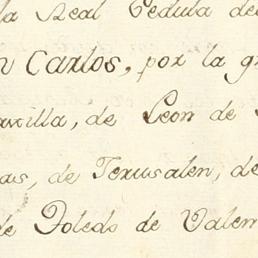 la Real Cedula de
n Carlos, por la gr
tilla, de Leon de
as, de Jerusalen, de
de Toledo de Valen